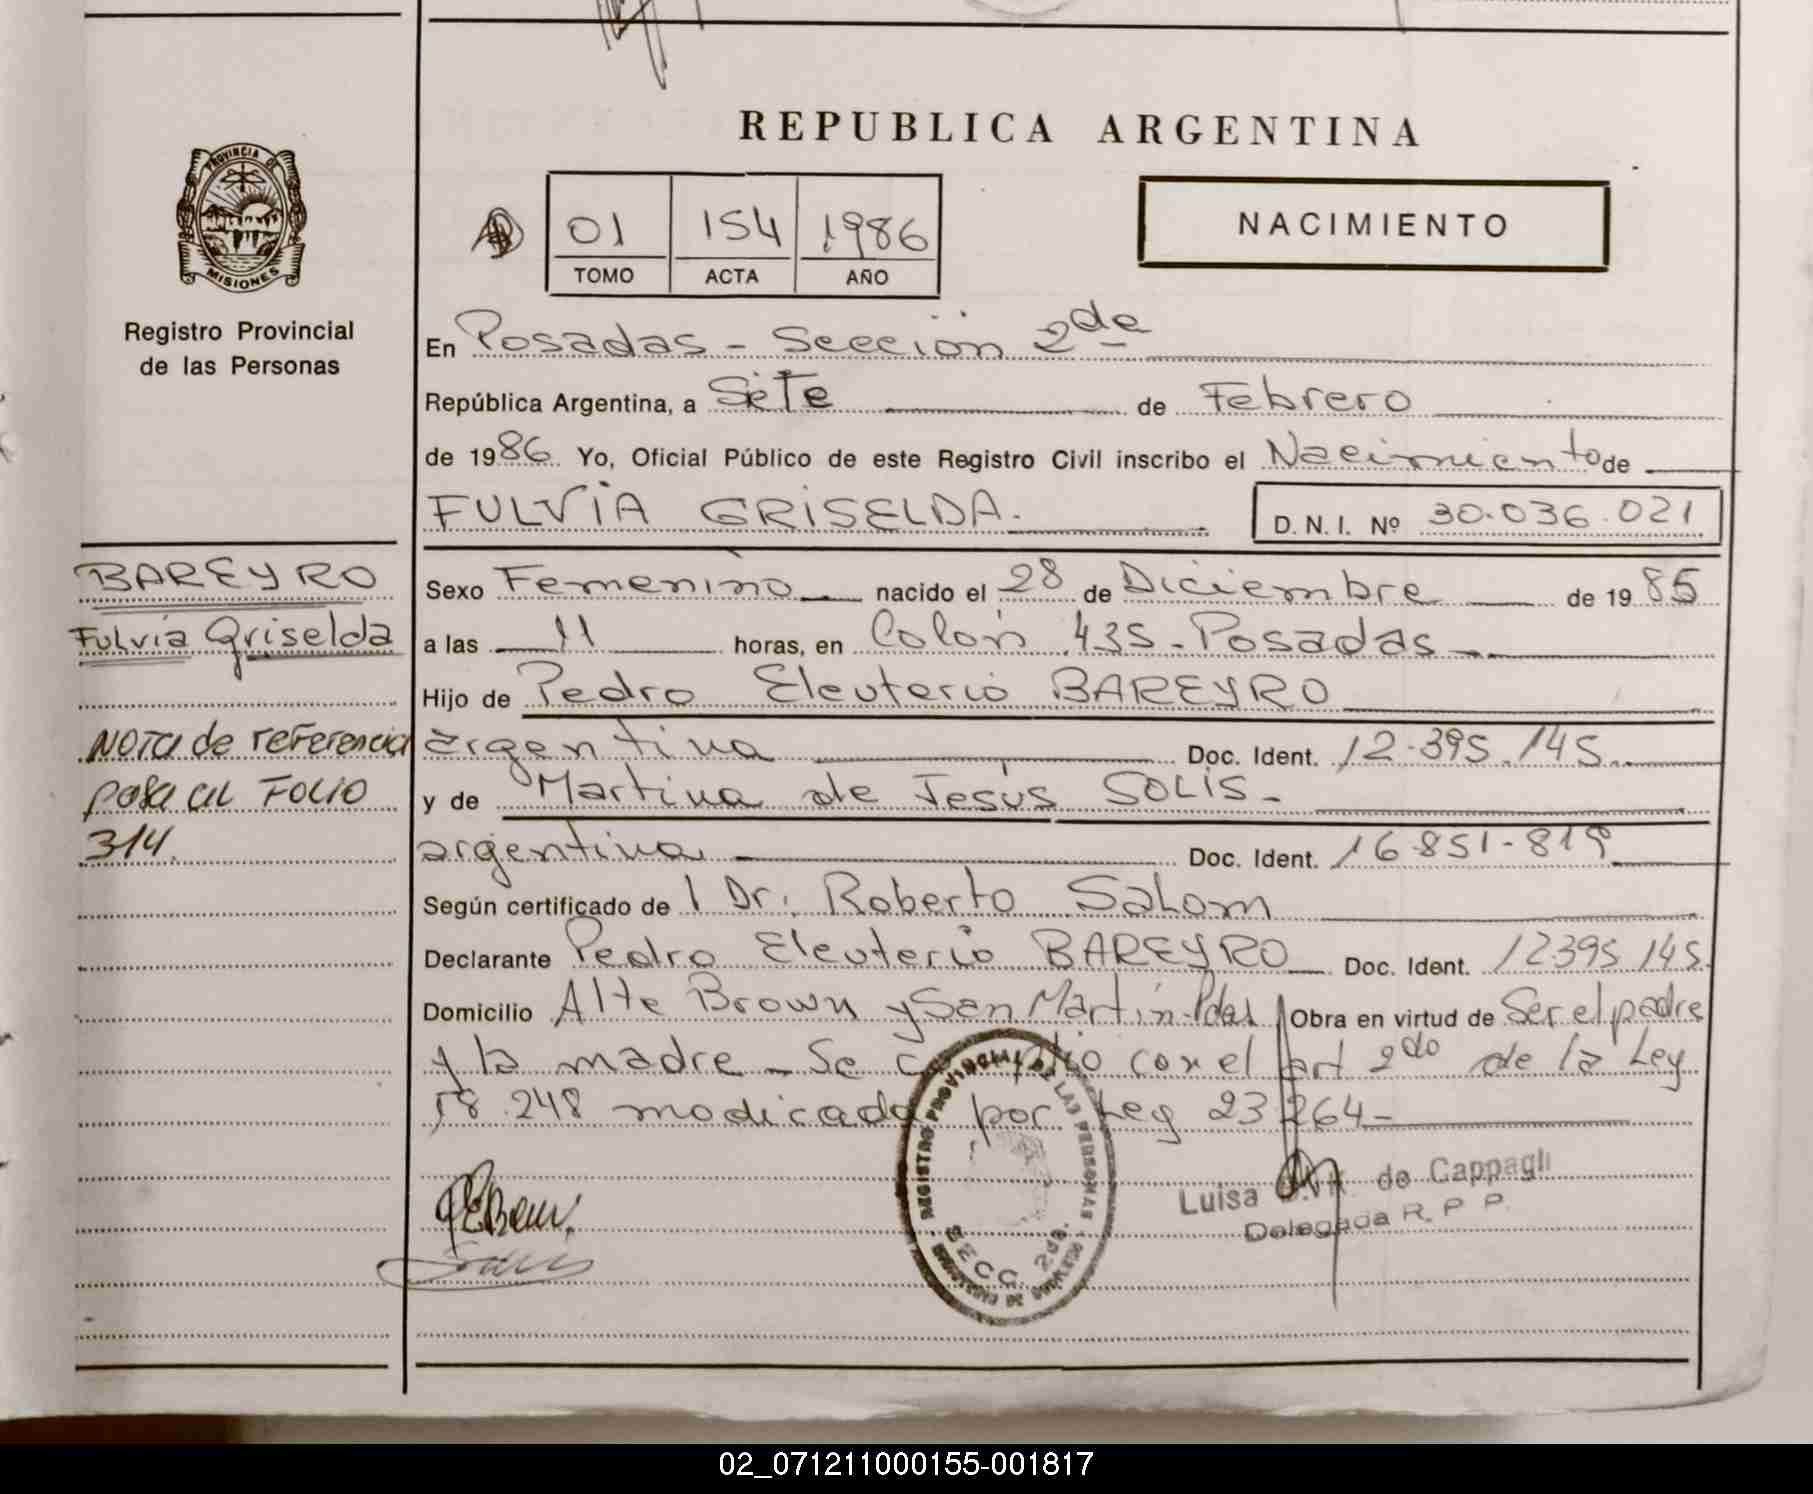 REPUBLICA ARGENTINA
PROVINCIA DE
MISIONES
Registro Provincial
de las Personas
01 154 1986
TOMO ACTA AÑO
NACIMIENTO
En Posadas - Sección 2da
República Argentina, a Siete de Febrero
de 1986 Yo, Oficial Público de este Registro Civil inscribo el Nacimiento de
FULVIA GRISELDA. D. N. I. Nº 30.036.021
BAREYRO
Fulvia Griselda
Nota de referencia
pasa al Folio
314.
Sexo Femenino nacido el 28 de Diciembre de 1985
a las 11 horas, en Colón 435 - Posadas -
Hijo de Pedro Eleuterio BAREYRO
argentina Doc. Ident. 12.395.145.
y de Martina de Jesús SOLIS -
argentina Doc. Ident. 16.851-819
Según certificado de 1 Dr. Roberto Salom
Declarante Pedro Eleuterio BAREYRO Doc. Ident. 12395145.
Domicilio Alte Brown y San Martín - Pdas Obra en virtud de Ser el padre
y la madre - Se con el art 2do de la Ley
18.248 modicada por Ley 23264 -
REGISTRO PROVINCIAL DE LAS PERSONAS
SECC. 2da.
Luisa de Cappagli
Delegada R. P. P.
02_071211000155-001817